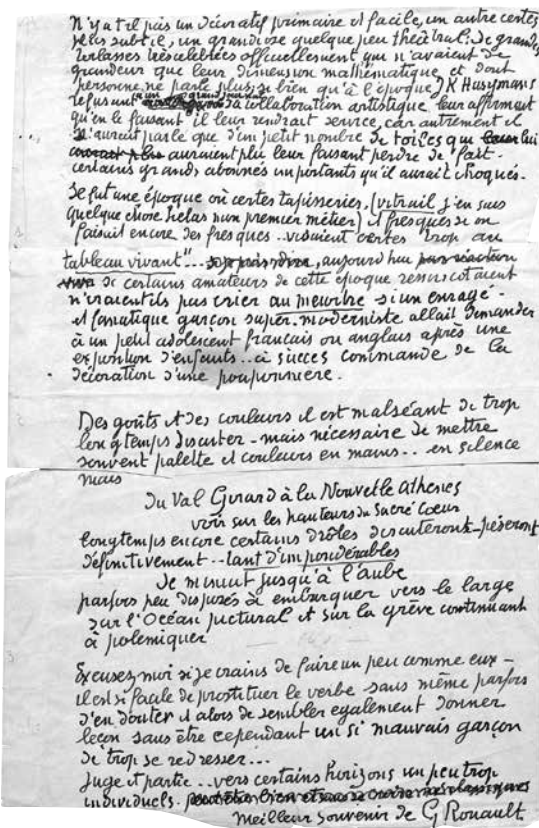 N'y a t il pas un décoratif primaire et facile, un autre certes
plus subtil, un grandiose quelque peu théâtral: de grandes
très célébrées officiellement qui n'avaient de
grandeur que leur dimension mathématique et dont
personne ne parle plus, si bien qu'à l'époque J K Huysmans
refusant à un grand journal sa collaboration artistique leur affirmant
qu'en le faisant il leur rendrait service, car autrement il
n'aurait parlé que d'un petit nombre de toiles qui lui
auraient plu leur faisant perdre de fait
certains grands abonnés importants qu'il aurait choqués.
Ce fut une époque où certes tapisseries, (vitrail j'en sais
quelque chose hélas mon premier métier) et fresques si on
faisait encore des fresques.. visaient certes trop au
tableau vivant"... aujourd'hui
si certains amateurs de cette époque ressuscitaient
n'iraient ils pas crier au meurtre si un enragé
et fanatique garçon super-moderniste allait demander
à un petit adolescent français ou anglais après une
exposition d'enfants.. à succès commande de la
décoration d'une pouponnière.
Des goûts et des couleurs il est malséant de trop
longtemps discuter - mais nécessaire de mettre
souvent palette et couleurs en mains.. en silence
mais
Du Val Girard à la Nouvelle Athènes
voir sur les hauteurs du Sacré Coeur
longtemps encore certains drôles discuteront - pèseront
définitivement.. tant d'impondérables
De minuit jusqu'à l'aube
parfois peu disposés à embarquer vers le large
sur l'Océan pictural et sur la grève continuant
à polémiquer
Excusez moi si je crains de faire un peu comme eux -
il est si facile de prostituer le verbe sans même parfois
s'en douter et alors de sembler également donner
leçon sans être cependant un si mauvais garçon
de trop se redresser...
Juge et partie.. vers certains horizons un peu trop
individuels.
Meilleur souvenir de G Rouault.